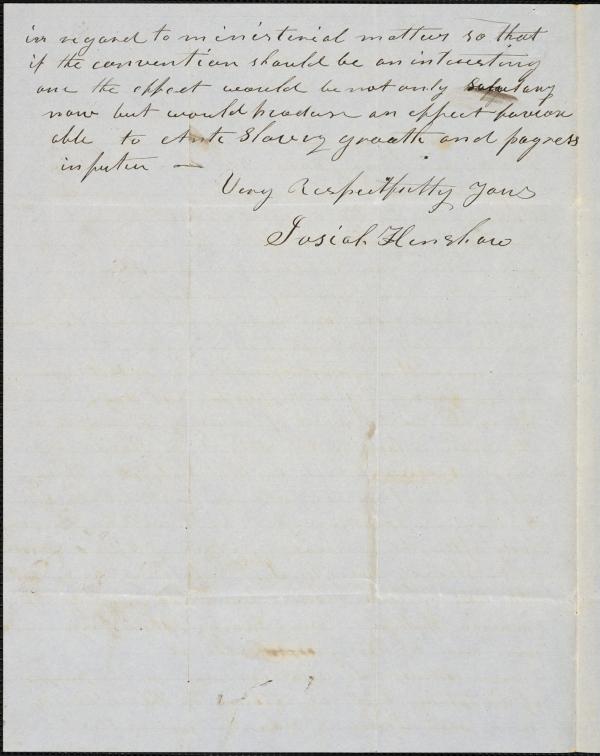 in regard to ministerial matters so that
if the convention should be an interesting
one the effect would be not only salutary
now but would produce an effect favour
able to Anti Slavery growth and progress
in future —
Very Respectfully Yours
Josiah Henshaw